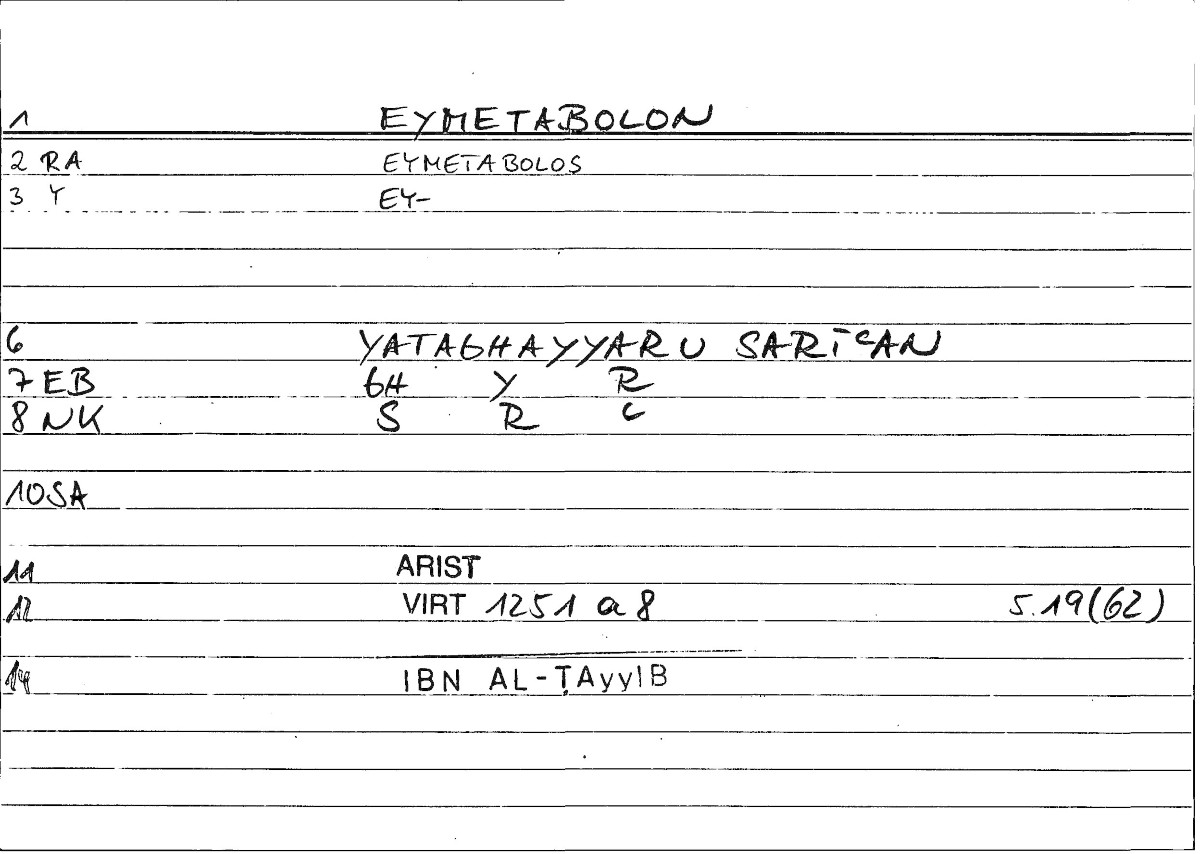 1 EYMETABOLON
2 RA EYMETABOLOS
3 Y EY-
6 YATAGHAYYARU SARĪʿAN
7 EB GH Y R
8 NK S R ʿ
10 SA
11 ARIST
12 VIRT 1251 a 8 5.19(62)
14 IBN AL-ṬAyyIB